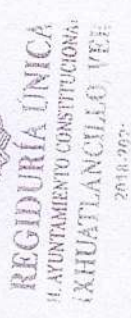 REGIDURÍA ÚNICA
H. AYUNTAMIENTO CONSTITUCIONAL
IXHUATLANCILLO, VER.
2018-2021